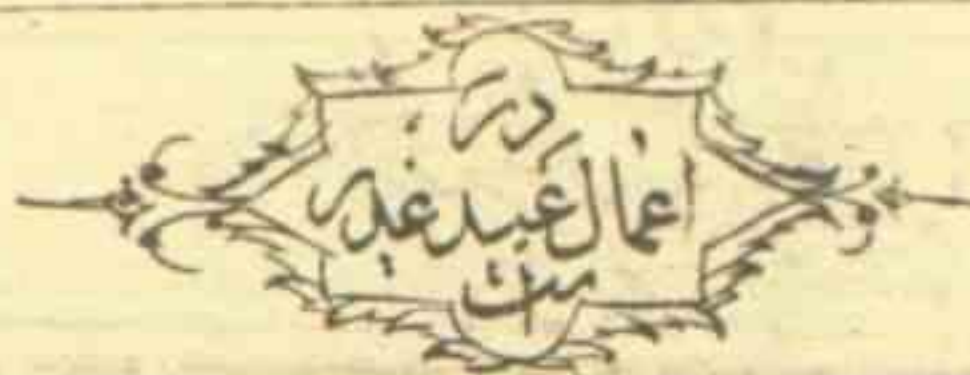 در
اعمال عید غدیر
است